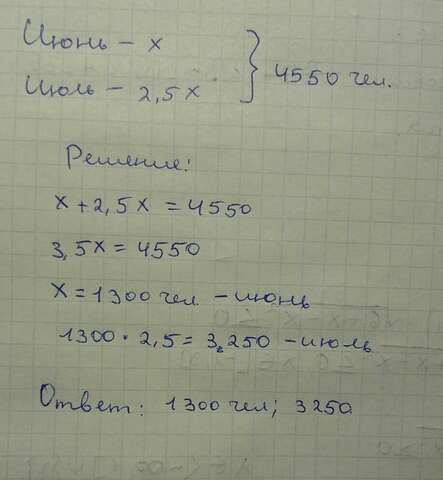 Июнь – x
Июль – 2,5x } 4550 чел.
Решение:
x + 2,5x = 4550
3,5x = 4550
x = 1300 чел – июнь
1300 · 2,5 = 3250 – июль
Ответ: 1300 чел; 3250